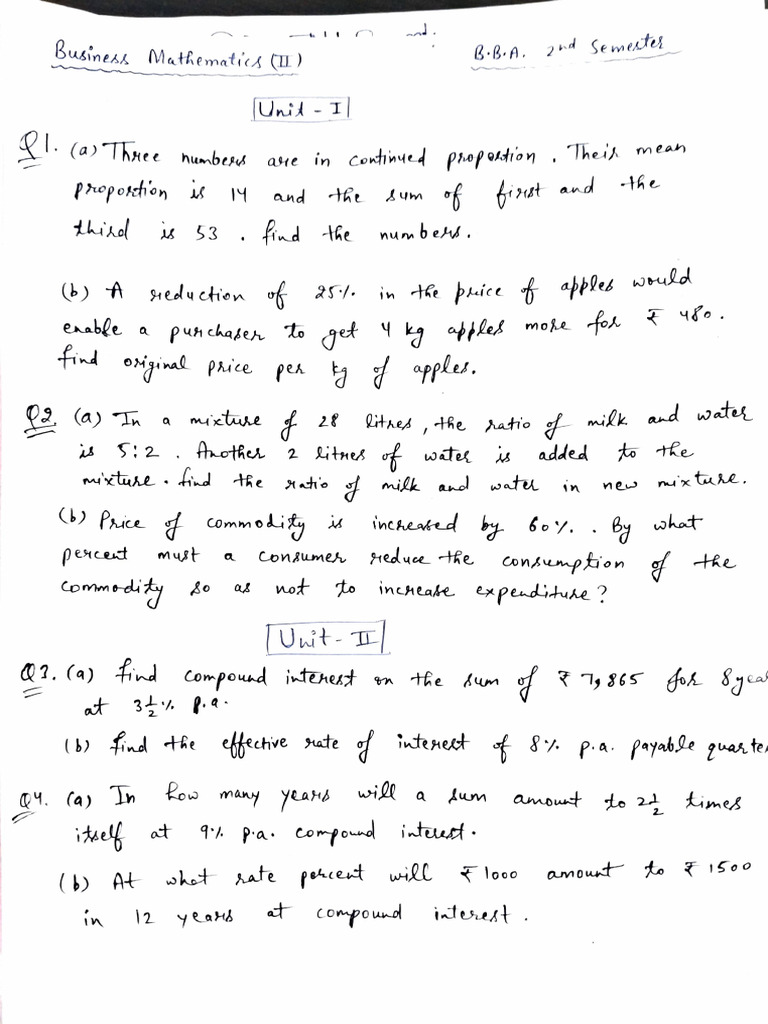 and.
Business Mathematics (II) B.B.A. 2nd Semester
Unit - I
Q1. (a) Three numbers are in continued proportion. Their mean
proportion is 14 and the sum of first and the
third is 53. find the numbers.
(b) A reduction of 25% in the price of apples would
enable a purchaser to get 4 kg apples more for ₹ 480.
find original price per kg of apples.
Q2. (a) In a mixture of 28 litres, the ratio of milk and water
is 5:2. Another 2 litres of water is added to the
mixture. find the ratio of milk and water in new mixture.
(b) Price of commodity is increased by 60%. By what
percent must a consumer reduce the consumption of the
commodity so as not to increase expenditure?
Unit - II
Q3. (a) find compound interest on the sum of ₹ 7,865 for 8 yea
at 3 1/2 % p.a.
(b) find the effective rate of interest of 8% p.a. payable quarte
Q4. (a) In how many years will a sum amount to 2 1/2 times
itself at 9% p.a. compound interest.
(b) At what rate percent will ₹ 1000 amount to ₹ 1500
in 12 years at compound interest.